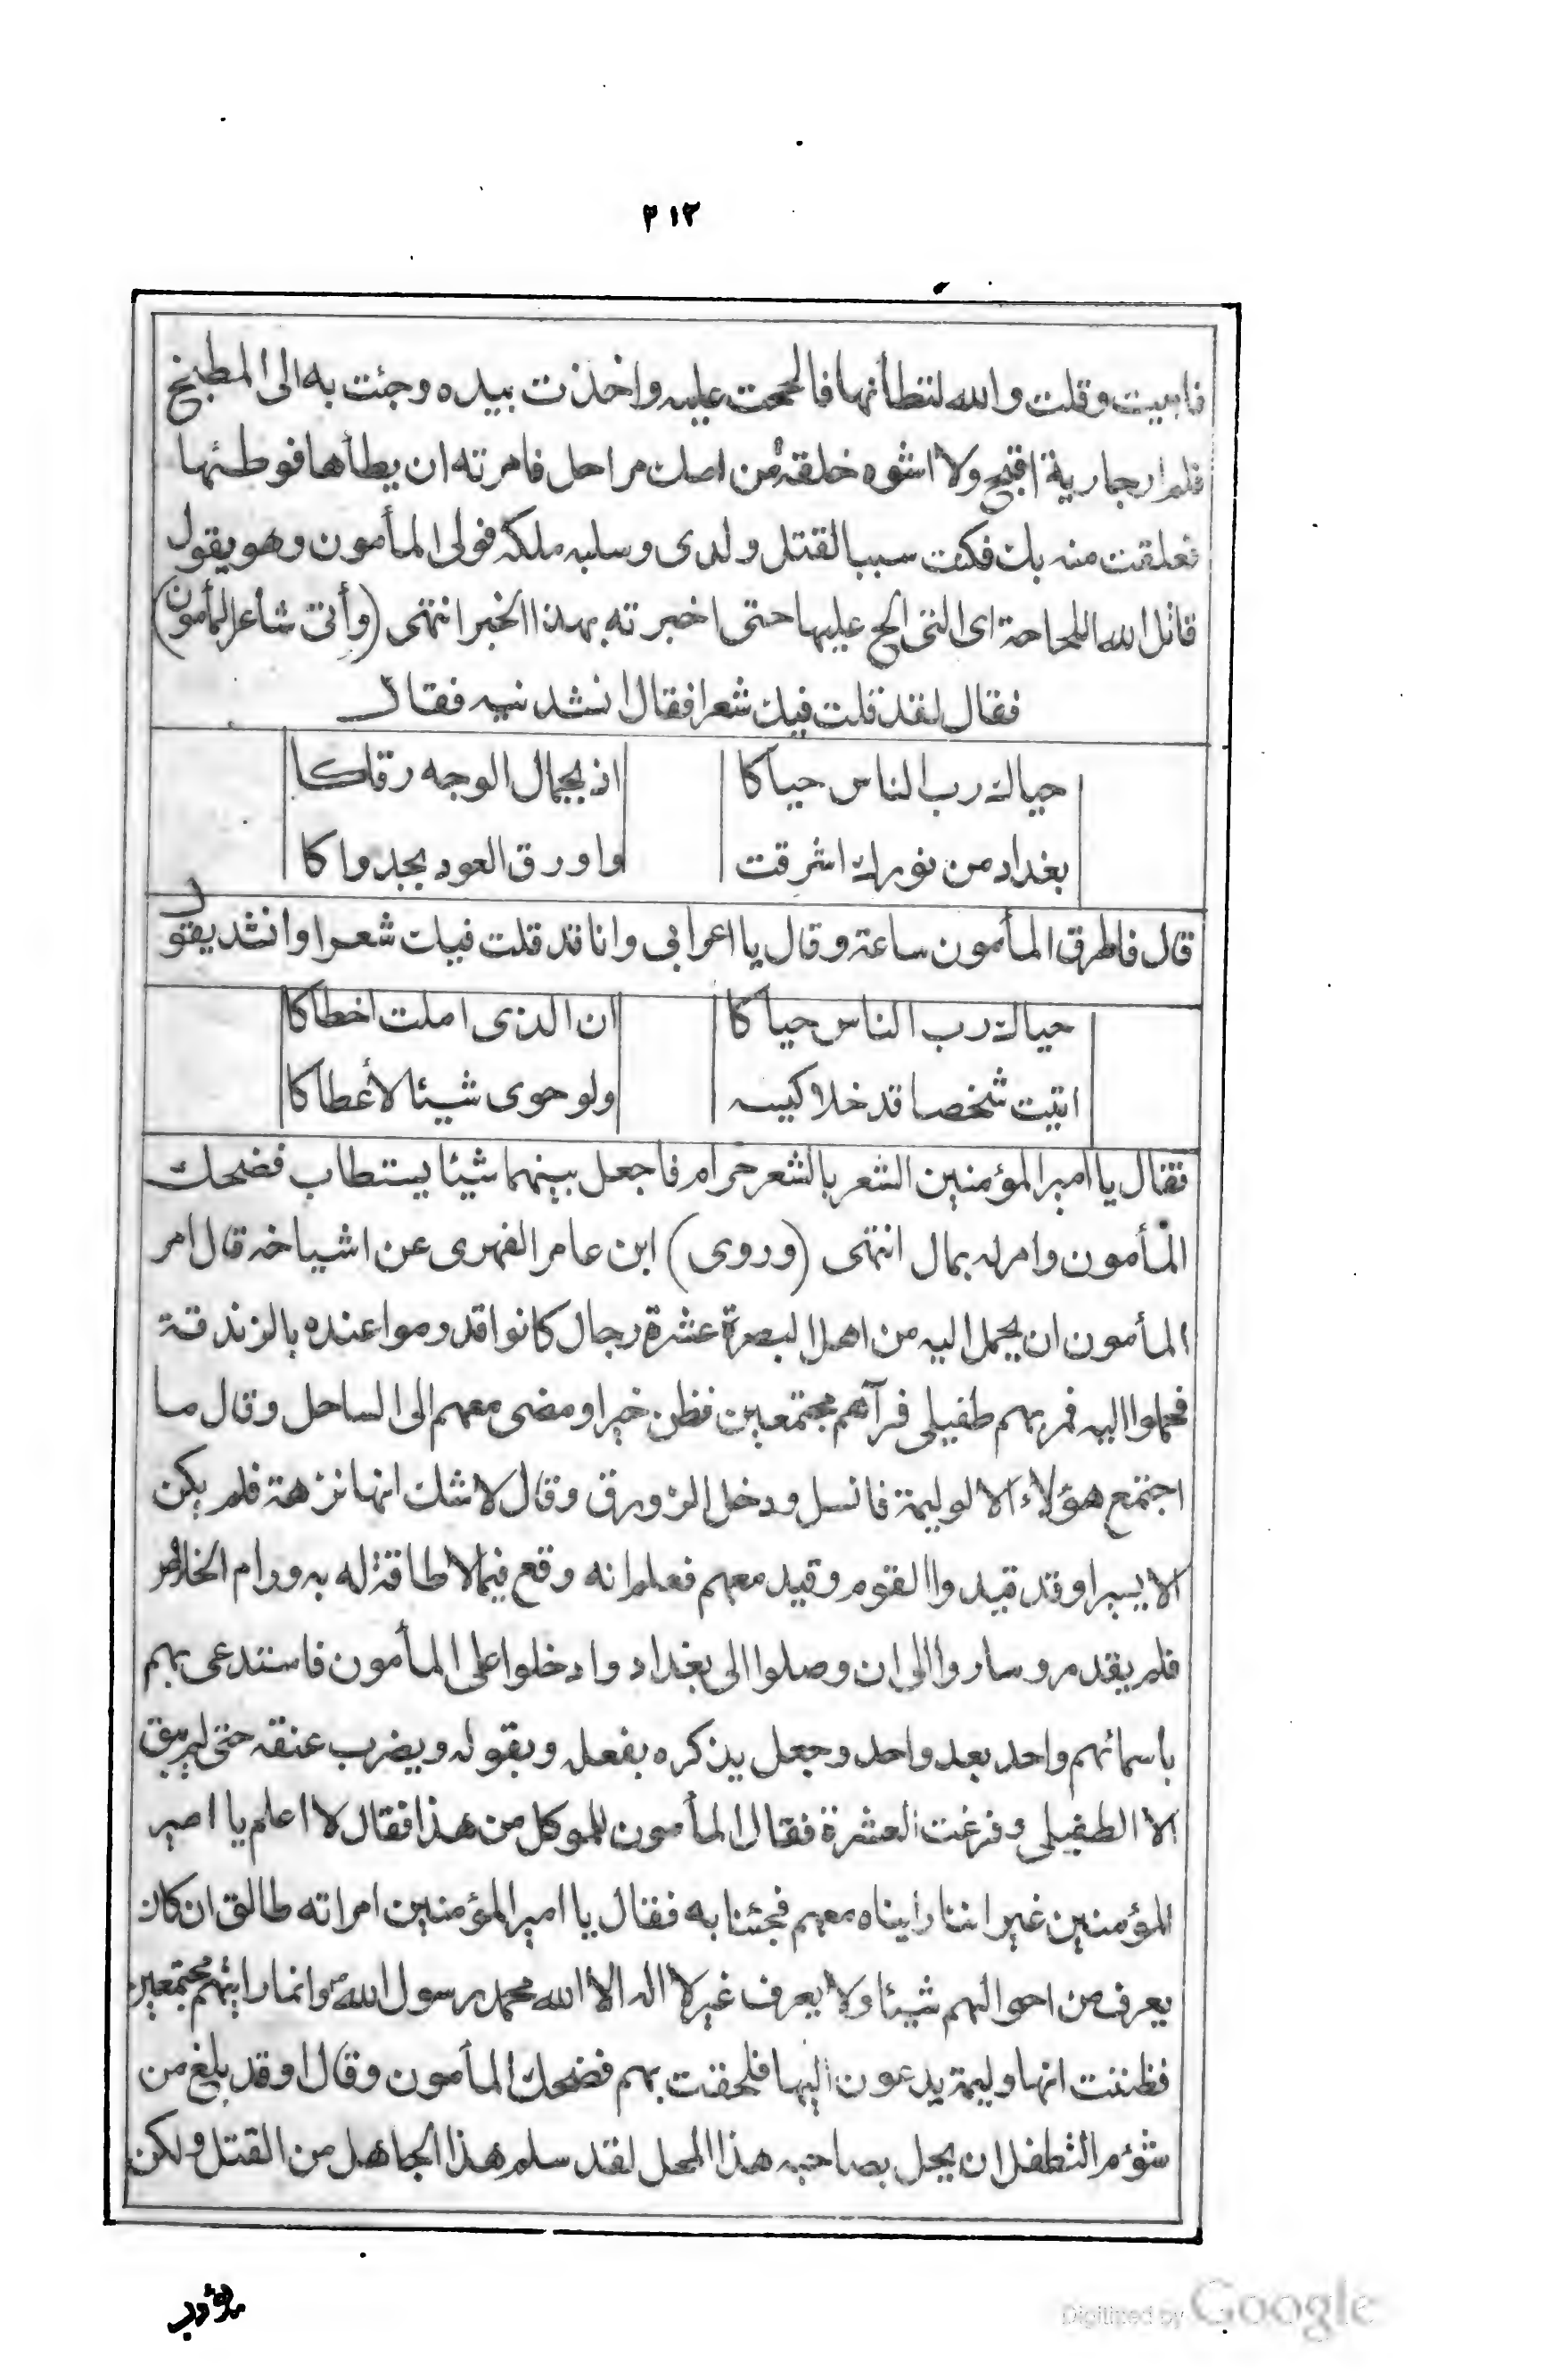 ٣١٣
فابيت وقلت والله لتطأنها فالححت عليه واخذت بيده وجئت به الى المطبخ
فلم ار جارية اقبح ولا اشوه خلقة من امك مراجل فامرته ان يطأها فوطئها
فعلقت منه بك فكنت سببا لقتل ولدى وسلبه ملكه فولى المأمون وهو يقول
قاتل الله اللجاجة اى التى الح عليها حتى اخبرته بهذا الخبر انتهى (وأتى شاعر المأمون)
فقال لقد قلت فيك شعرا فقال انشدنيه فقال
حياك رب الناس حياكا اذ بجمال الوجه رقاكا
بغداد من نورك اشرقت واورق العود بجدواكا
قال فاطرق المأمون ساعة وقال يا اعرابى وانا قد قلت فيك شعرا وانشد يقول
حياك رب الناس حياكا ان الذى املت اخطاكا
اتيت شخصا قد خلا كيسه ولو حوى شيئا لأعطاكا
فقال يا امير المؤمنين الشعر بالشعر حرام فاجعل بينهما شيئا يستطاب فضحك
المأمون وامر له بمال انتهى (وروى) ابن عامر الفهرى عن اشياخه قال امر
المأمون ان يحمل اليه من اهل البصرة عشرة رجال كانوا قد رموا عنده بالزندقة
فحملوا اليه فمر بهم طفيلى فرآهم مجتمعين فظن خيرا ومضى معهم الى الساحل وقال ما
اجتمع هؤلاء الا لوليمة فانسل ودخل الزورق وقال لا شك انها نزهة فلم يكن
الا يسيرا وقد قيدوا القوم وقيد معهم فعلم انه وقع فيما لا طاقة له به ورام الخلاص
فلم يقدر وساروا الى ان وصلوا الى بغداد وادخلوا على المأمون فاستدعى بهم
باسمائهم واحد بعد واحد وجعل يذكره بفعله وبقوله ويضرب عنقه حتى لم يبق
الا الطفيلى وفرغت العشرة فقال المأمون للموكل من هذا فقال لا اعلم يا امير
المؤمنين غير اننا رأيناه معهم فجئنا به فقال يا امير المؤمنين امراته طالق ان كان
يعرف من احوالهم شيئا ولا يعرف غير لا اله الا الله محمد رسول الله وانما رايتهم مجتمعين
فظننت انها وليمة يدعون اليها فلحقت بهم فضحك المأمون وقال اوقد بلغ من
شؤم التطفل ان يحل بصاحبه هذا المحل لقد سلم هذا الجاهل من القتل ولكن
يؤدب
Digitized by Google